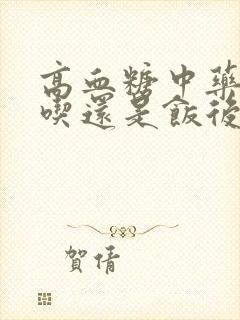 高血糖中藥
喫還是飯後
賀倩